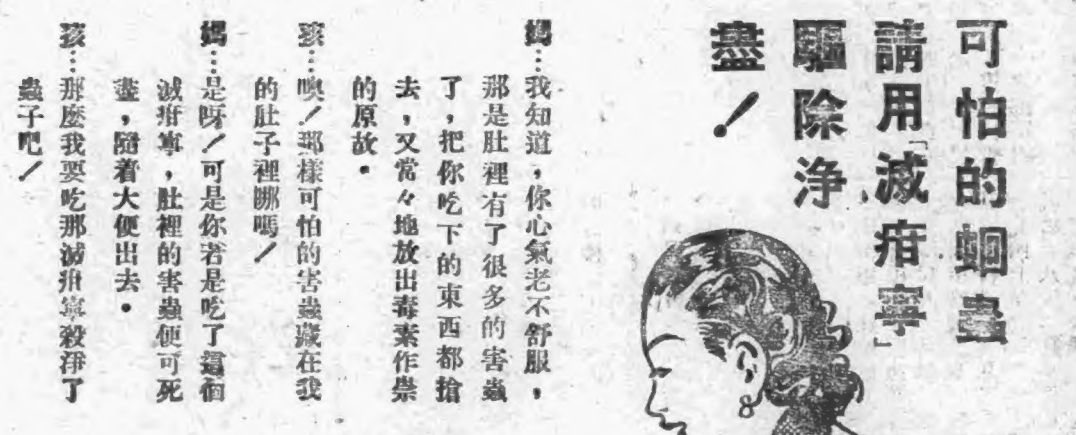 可怕的蛔蟲
請用「滅疳寧」
驅除净
盡！
媽…我知道，你心氣老不舒服，
那是肚裡有了很多的害蟲
了，把你吃下的東西都搶
去，又常々地放出毒素作祟
的原故。
孩…噢！那樣可怕的害蟲藏在我
的肚子裡嗎！
媽…是呀！可是你若是吃了這個
滅疳寧，肚裡的害蟲便可死
盡，隨着大便出去。
孩…那麼我要吃那滅疳寧殺淨了
蟲子吧！